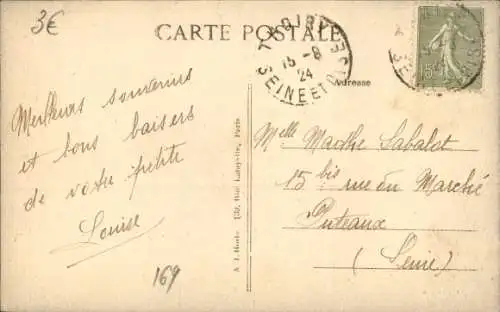 3€
CARTE POSTALE
THOIRY
15-8
24
SEINE ET OISE
Adresse
15c
Meilleurs souvenirs
et bons baisers
de votre petite
Louise
169
Paris
Melle Marthe Sabalot
15 bis rue du Marché
Puteaux
(Seine)